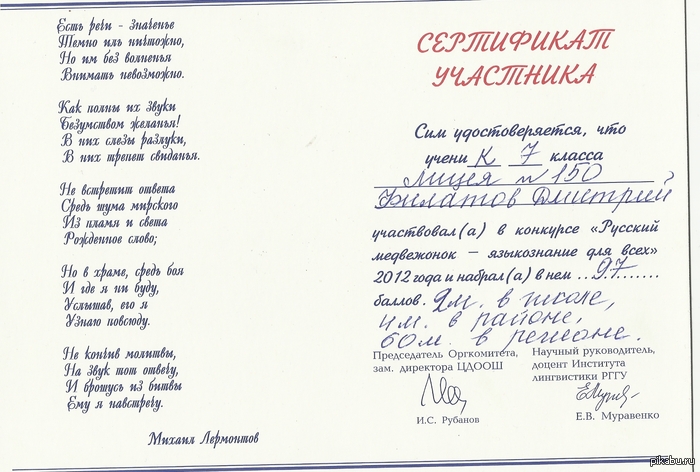 Есть речи - значенье
Темно иль ничтожно,
Но им без волненья
Внимать невозможно.
Как полны их звуки
Безумством желанья!
В них слезы разлуки,
В них трепет свиданья.
Не встретит ответа
Средь шума мирского
Из пламя и света
Рожденное слово;
Но в храме, средь боя
И где я ни буду,
Услышав, его я
Узнаю повсюду.
Не кончив молитвы,
На звук тот отвечу,
И брошусь из битвы
Ему я навстречу.
Михаил Лермонтов
СЕРТИФИКАТ
УЧАСТНИКА
Сим удостоверяется, что
учени к 7 класса
лицея № 150
Филатов Дмитрий
участвовал(а) в конкурсе «Русский
медвежонок – языкознание для всех»
2012 года и набрал(а) в нем ...97.......
баллов. 2м. в школе,
4м. в районе,
60м. в регионе.
Председатель Оргкомитета,
зам. директора ЦДООШ
И.С. Рубанов
Научный руководитель,
доцент Института
лингвистики РГГУ
Е.В. Муравенко
pikabu.ru